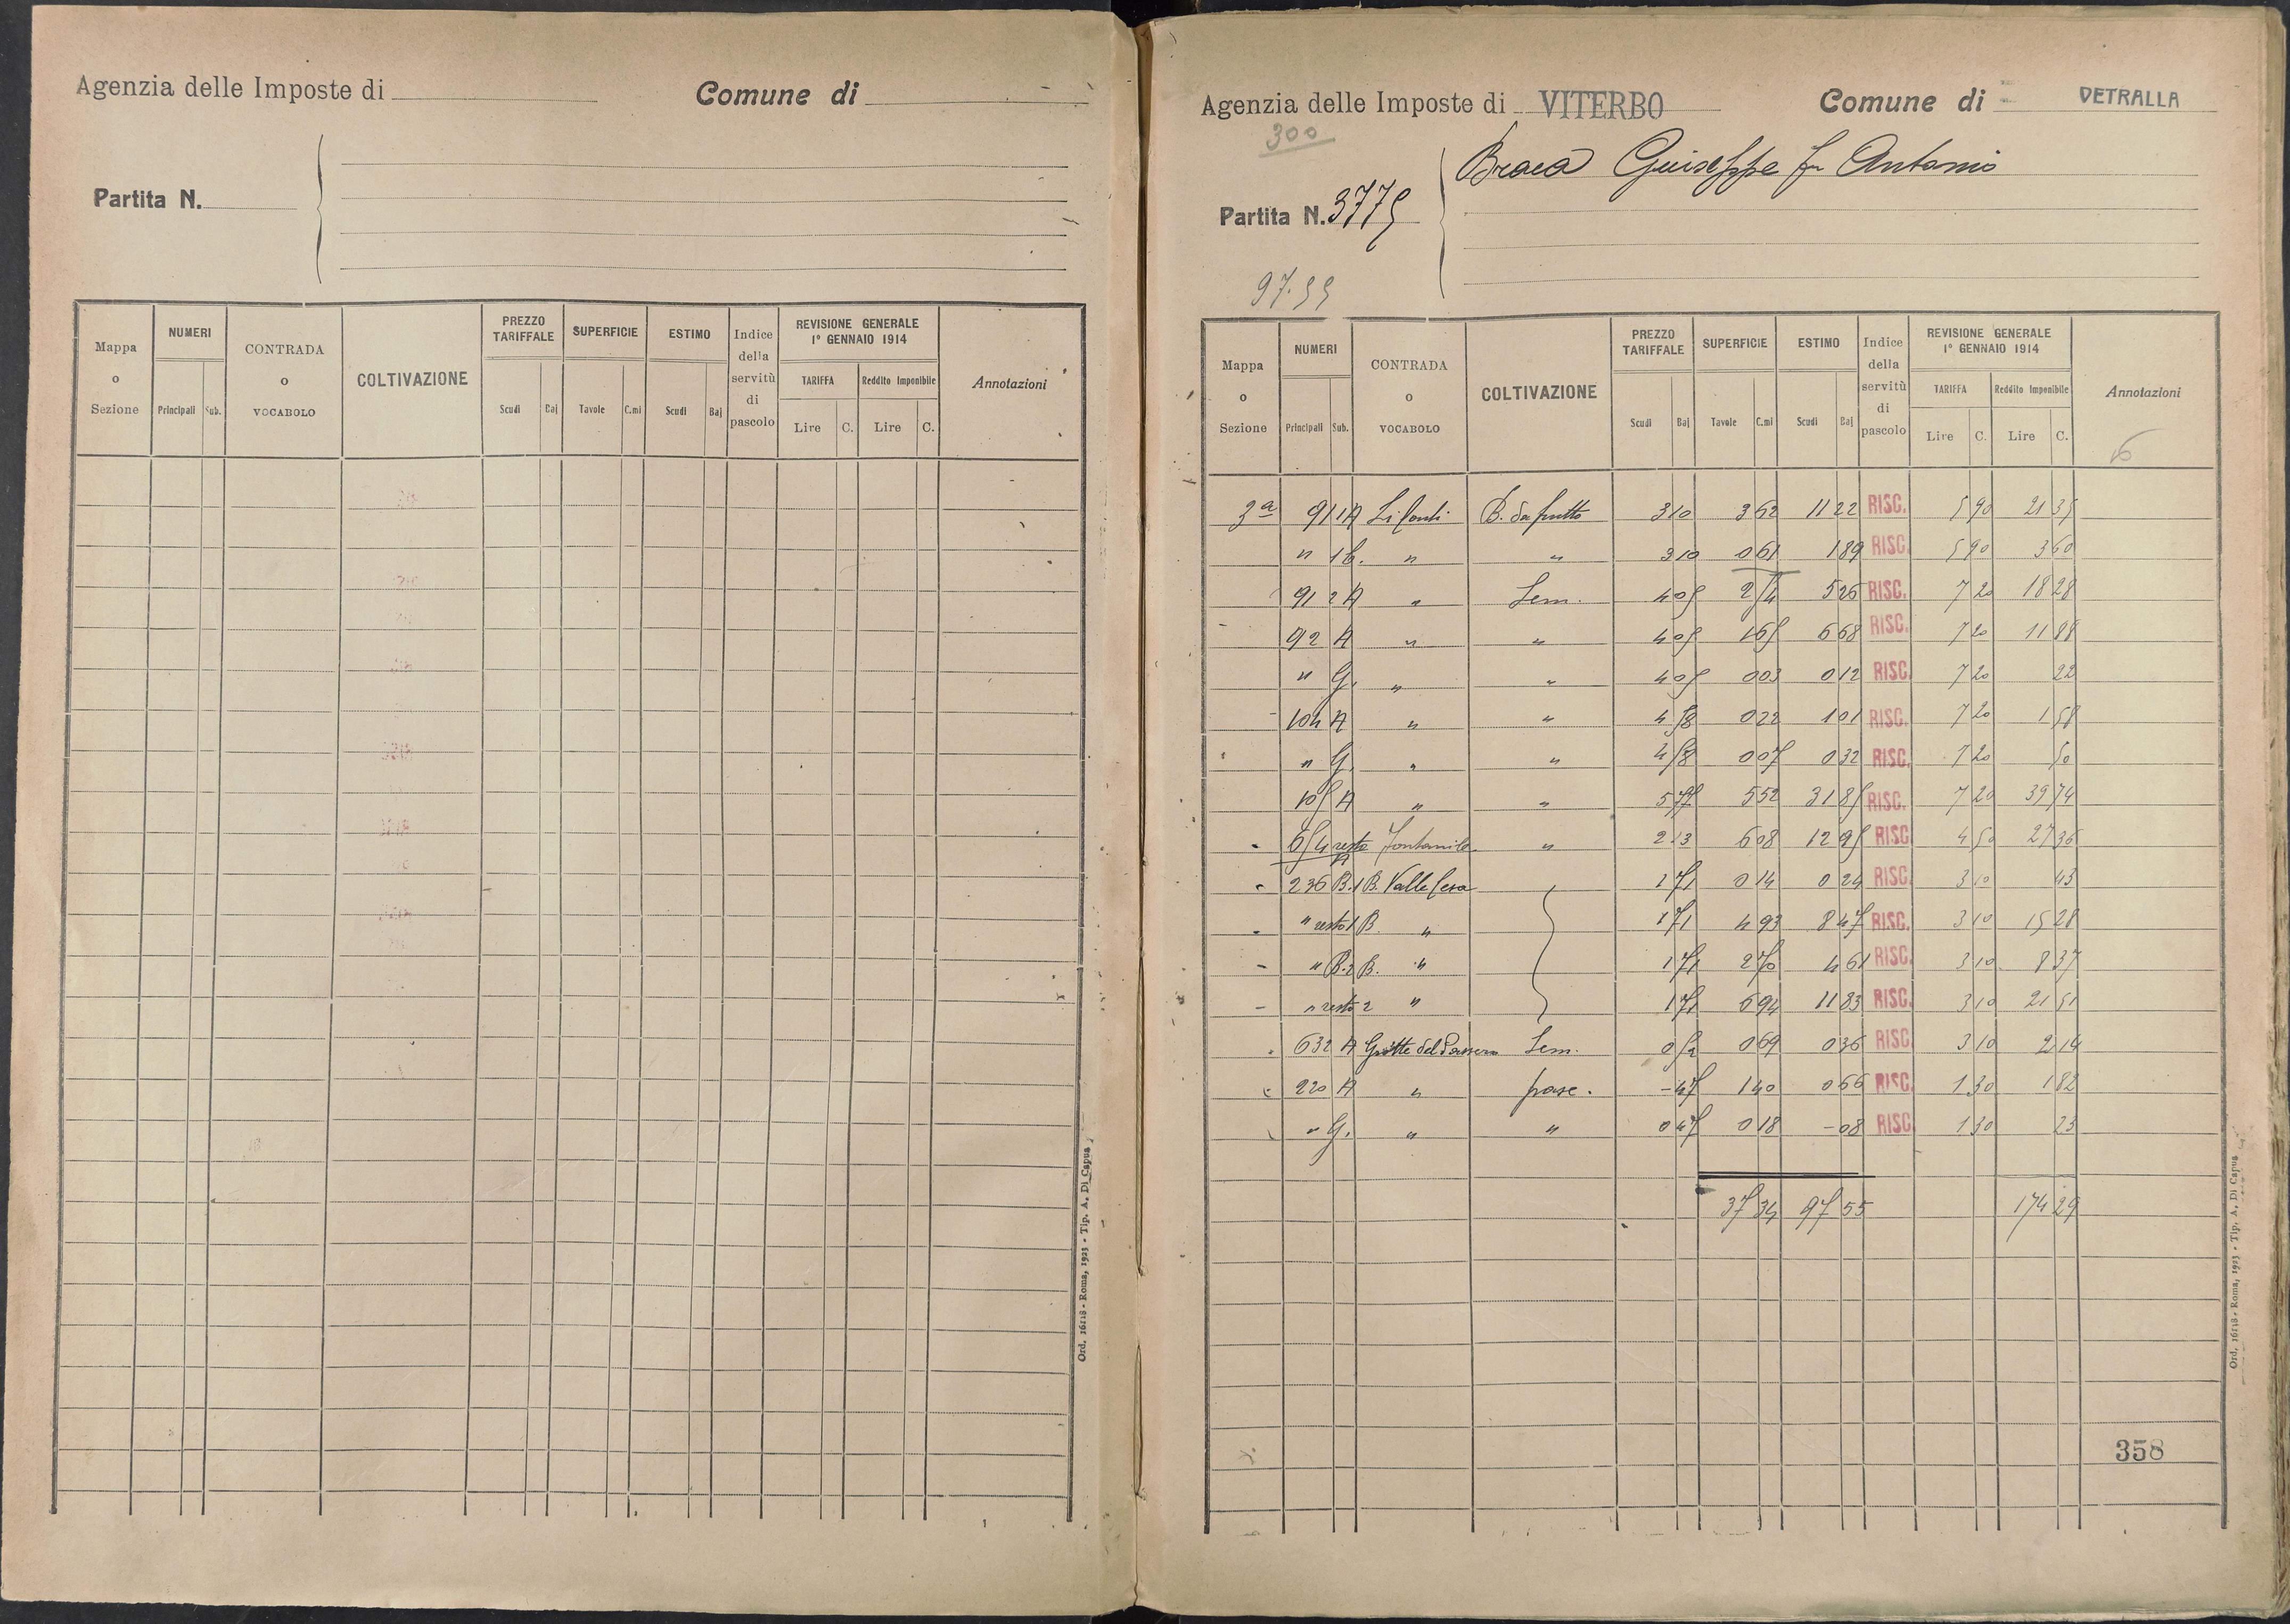 Agenzia delle Imposte di
Comune di
Partita N.
Mappa o Sezione
NUMERI
Principali Sub.
CONTRADA o VOCABOLO
COLTIVAZIONE
PREZZO TARIFFALE
Scudi Baj
SUPERFICIE
Tavole C.mi
ESTIMO
Scudi Baj
Indice della servitù di pascolo
REVISIONE GENERALE
1° GENNAIO 1914
TARIFFA Reddito Imponibile
Lire C. Lire C.
Annotazioni
Ord. 16118 - Roma, 1923 - Tip. A. Di Capua
Agenzia delle Imposte di VITERBO
Comune di VETRALLA
300
Braca Giuseppe fu Antonio
Partita N. 3775
97.99
Mappa o Sezione
NUMERI
Principali Sub.
CONTRADA o VOCABOLO
COLTIVAZIONE
PREZZO TARIFFALE
Scudi Baj
SUPERFICIE
Tavole C.mi
ESTIMO
Scudi Baj
Indice della servitù di pascolo
REVISIONE GENERALE
1° GENNAIO 1914
TARIFFA Reddito Imponibile
Lire C. Lire C.
Annotazioni
6
3ª 91 1A Li Conti B. da frutto 3 10 3 62 11 22 RISC. 5 90 21 35
" 1 b. " " 3 10 0 61 1 89 RISC. 5 90 3 60
91 2 A " Sem. 4 05 2 54 5 26 RISC. 7 20 18 28
92 A " " 4 05 1 65 6 68 RISC. 7 20 11 88
" G. " " 4 05 0 03 0 12 RISC. 7 20 22
104 A " " 4 58 0 22 1 01 RISC. 7 20 1 58
" G. " " 4 58 0 07 0 32 RISC. 7 20 50
105 A " " 5 77 5 52 31 85 RISC. 7 20 39 74
654 resto A Fontanile " 2 13 6 08 12 95 RISC. 4 50 27 36
236 B.1 B. Valle 1 71 0 14 0 24 RISC. 3 10 43
" resto 1 B. " 1 71 4 93 8 47 RISC. 3 10 15 28
" B.2 B. " 1 71 2 70 4 61 RISC. 3 10 8 37
" resto 2 " 1 71 6 94 11 83 RISC. 3 10 21 51
632 A Grotte del Sem. 0 52 0 69 0 36 RISC. 3 10 2 14
220 A " pasc. - 47 1 40 0 66 RISC. 1 30 1 82
" G. " " 0 47 0 18 - 08 RISC. 1 30 23
37 34 97 55 174 29
358
Ord. 16118 - Roma, 1923 - Tip. A. Di Capua